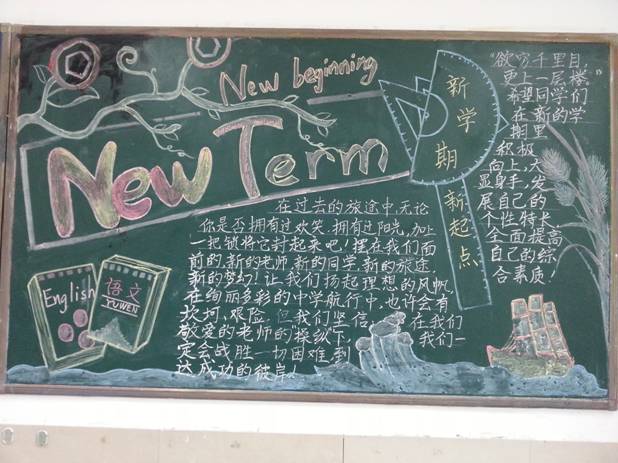 New beginning
New Term
新学期新起点
English
语文
YUWEN
在过去的旅途中,无论
你是否拥有过欢笑,拥有过阳光,加上
一把锁将它封起来吧!摆在我们面
前的,新的老师,新的同学,新的旅途,
新的梦幻!让我们扬起理想的风帆
在绚丽多彩的中学航行中,也许会有
坎坷,艰险,但我们坚信,在我们
敬爱的老师的操纵下,我们一
定会战胜一切困难,到
达成功的彼岸!
"欲穷千里目,
更上一层楼,"
希望同学们
在新的学
期里
积极
向上,大
显身手,发
展自己的
个性特长,
全面提高
自己的综
合素质!